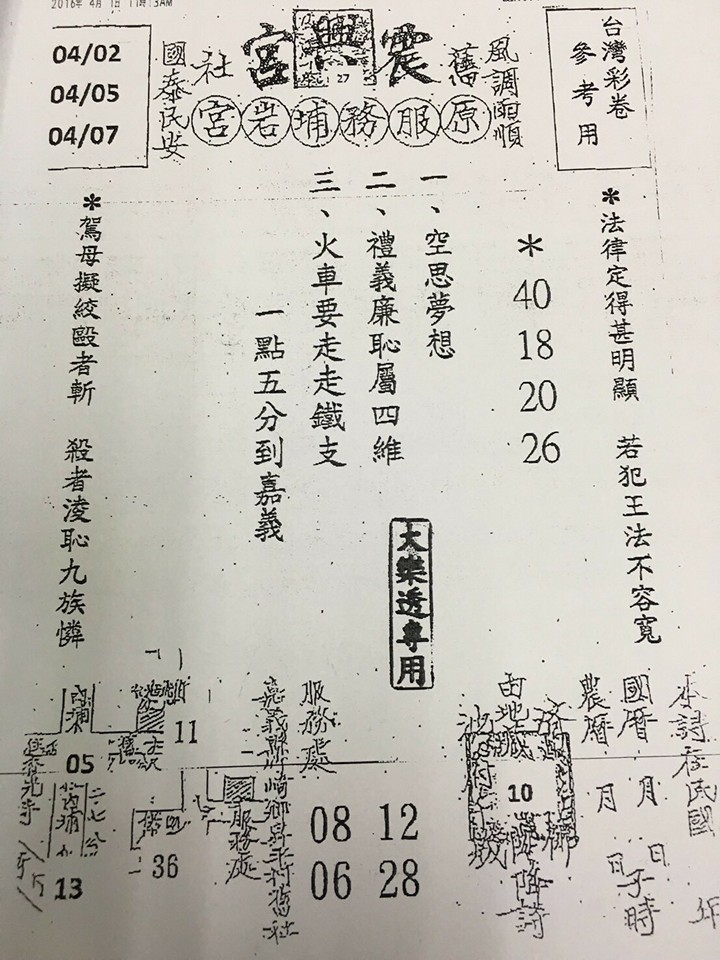 2016年 4月 1日 11時13AM
台灣彩卷
參考用
風調雨順
舊
震興宮
27
社
國泰民安
原服務埔岩宮
04/02
04/05
04/07
*法律定得甚明顯 若犯王法不容寬
*
40
18
20
26
一、空思夢想
二、禮義廉恥屬四維
三、火車要走走鐵支
一點五分到嘉義
大樂透專用
*駕母擬絞毆者斬 殺者淩恥九族憐
本詩在民國 年
國曆 月 日子時
農曆 月 日
10
降詩
服務處
嘉義縣
崎鄉
村舊社
08 12
06 28
服務處
11
36
05
13